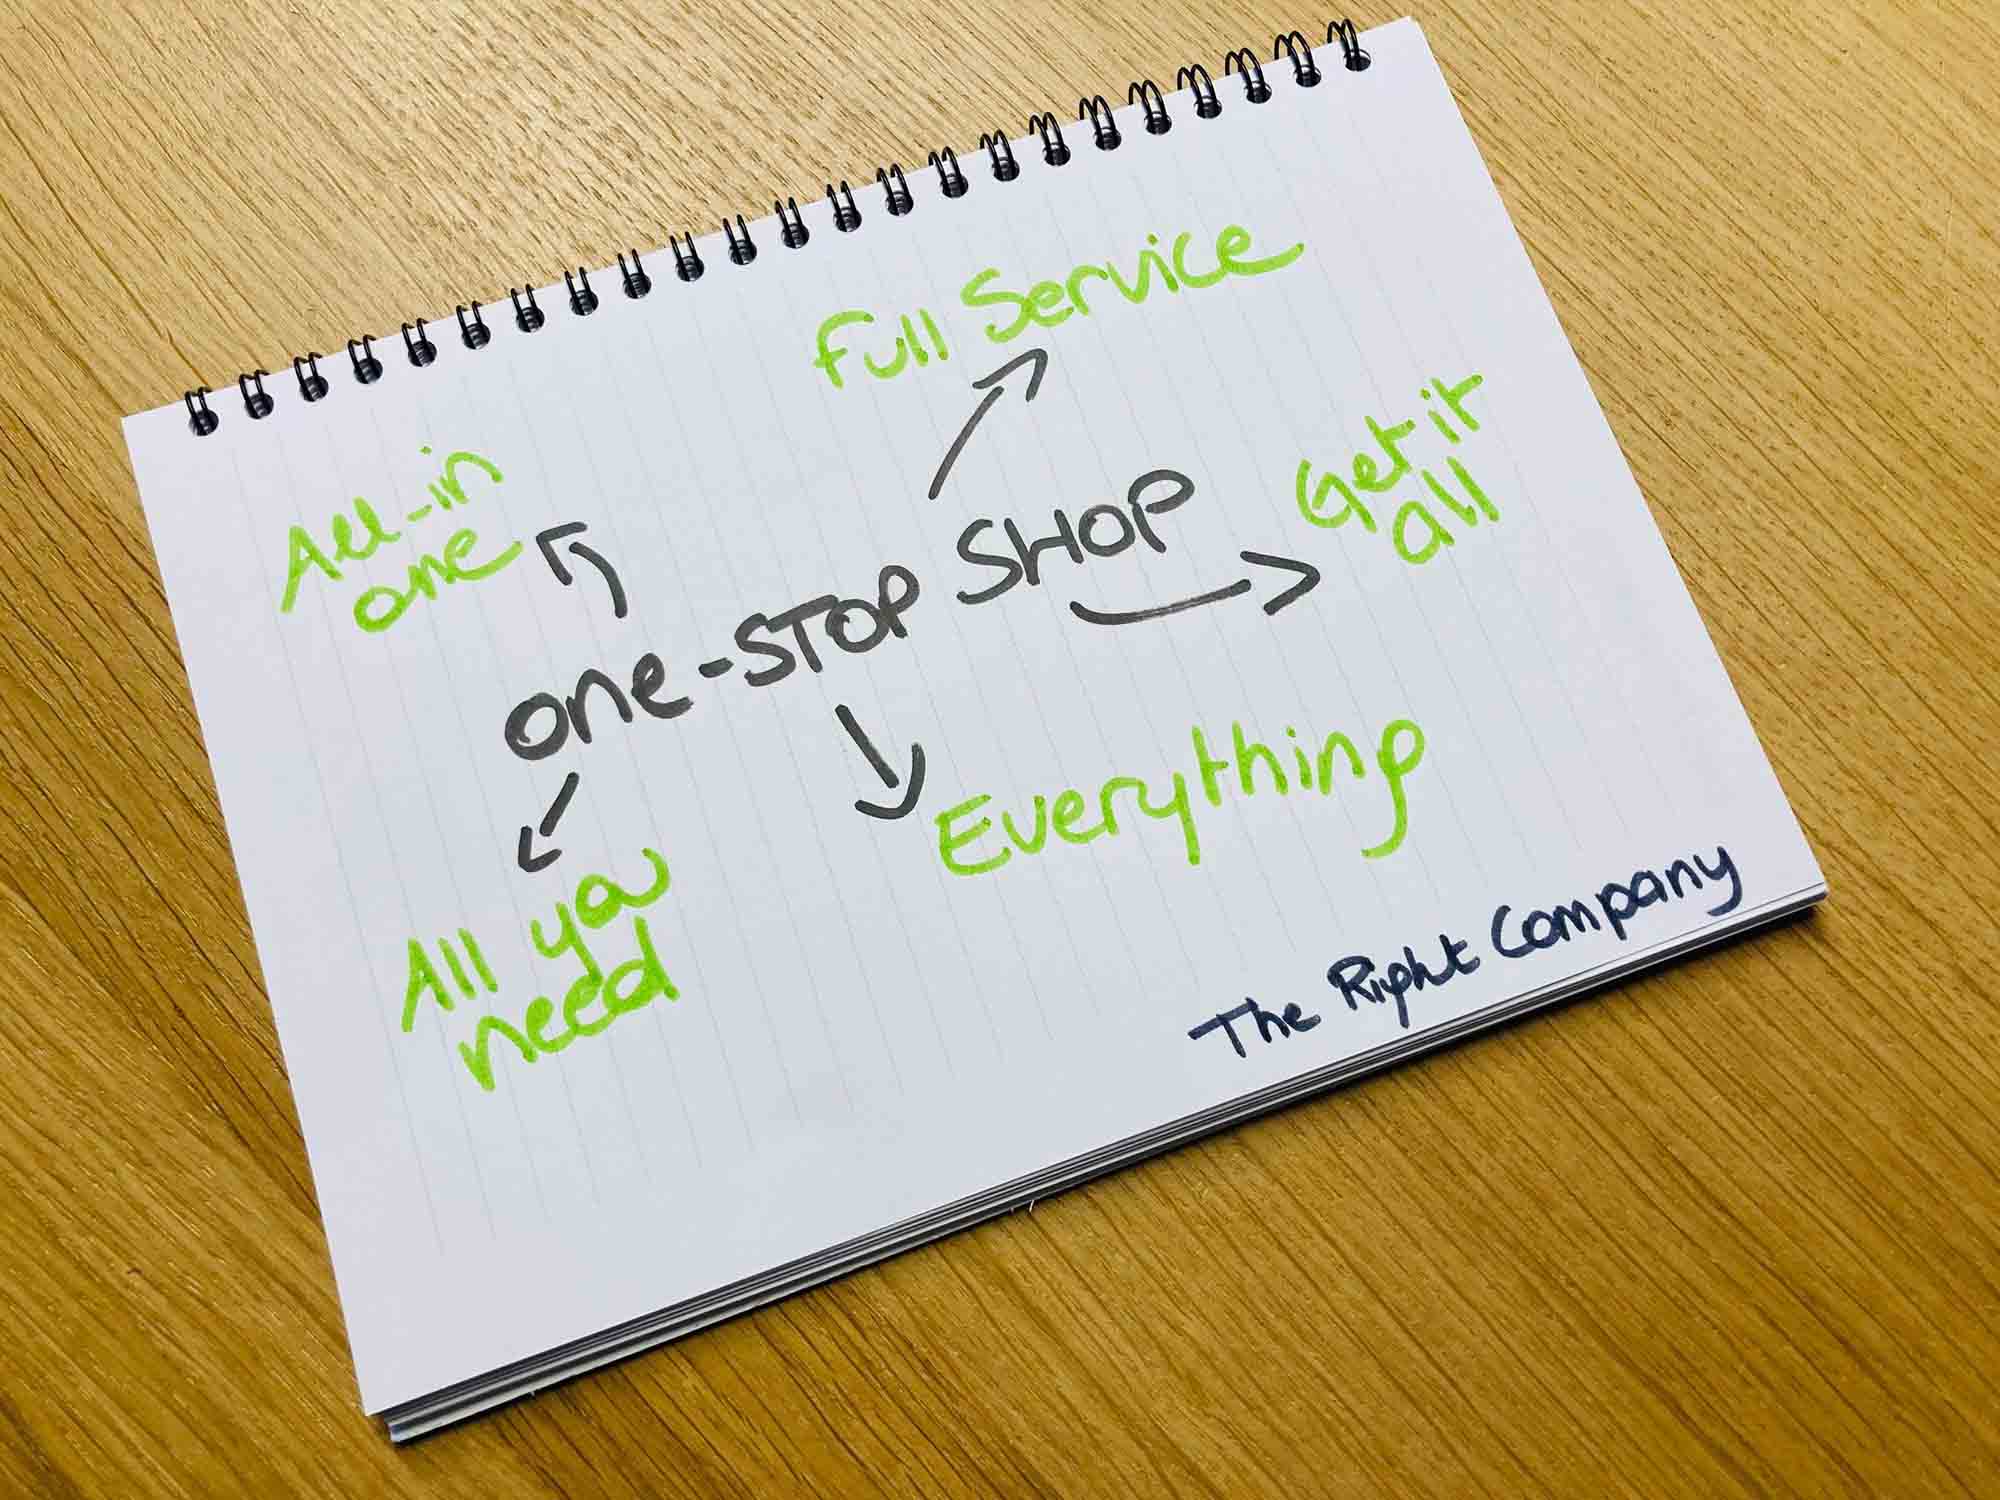 Full Service
Get it
all
All-in
one
one-STOP SHOP
Everything
All you
need
The Right Company